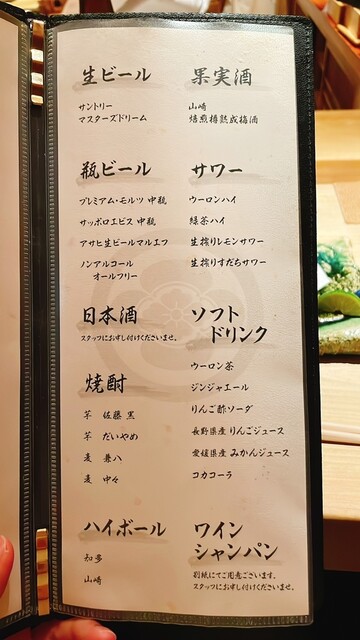 生ビール
サントリー
マスターズドリーム
瓶ビール
プレミアム・モルツ 中瓶
サッポロエビス 中瓶
アサヒ生ビールマルエフ
ノンアルコール
オールフリー
日本酒
スタッフにお申し付けくださいませ。
焼酎
芋 佐藤 黒
芋 だいやめ
麦 兼八
麦 中々
ハイボール
知多
山崎
果実酒
山崎
焙煎樽熟成梅酒
サワー
ウーロンハイ
緑茶ハイ
生搾りレモンサワー
生搾りすだちサワー
ソフト
ドリンク
ウーロン茶
ジンジャエール
りんご酢ソーダ
長野県産 りんごジュース
愛媛県産 みかんジュース
コカコーラ
ワイン
シャンパン
別紙にてご用意ございます。
スタッフにお申し付けくださいませ。